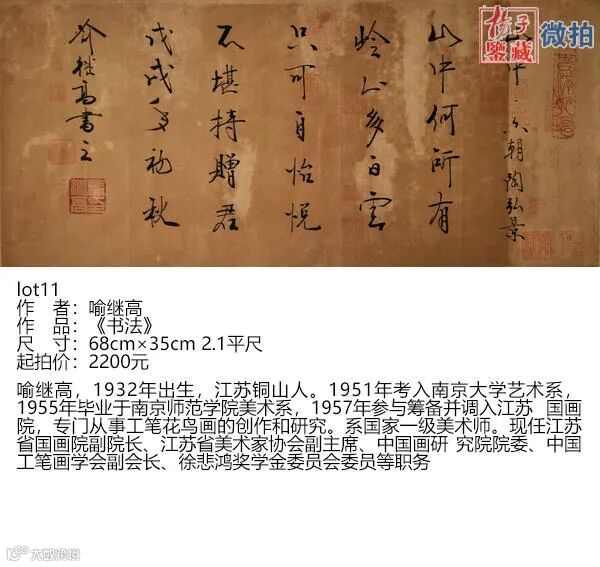 扬子鉴藏
微拍
六朝陶弘景
山中何所有
岭上多白云
只可自怡悦
不堪持贈君
戊戌年初秋
喻继高書之
lot11
作 者：喻继高
作 品：《书法》
尺 寸：68cm×35cm 2.1平尺
起拍价：2200元
喻继高，1932年出生，江苏铜山人。1951年考入南京大学艺术系，
1955年毕业于南京师范学院美术系，1957年参与筹备并调入江苏 国画
院，专门从事工笔花鸟画的创作和研究。系国家一级美术师。现任江苏
省国画院副院长、江苏省美术家协会副主席、中国画研 究院院委、中国
工笔画学会副会长、徐悲鸿奖学金委员会委员等职务
大数跨境